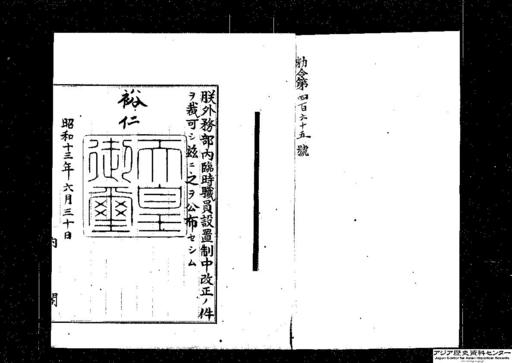 勅令第四百六十五號
朕外務部內臨時職員設置制中改正ノ件
ヲ裁可シ茲ニ之ヲ公布セシム
裕仁
天皇
御璽
昭和十三年六月三十日
內閣
アジア歴史資料センター
Japan Center for Asian Historical Records